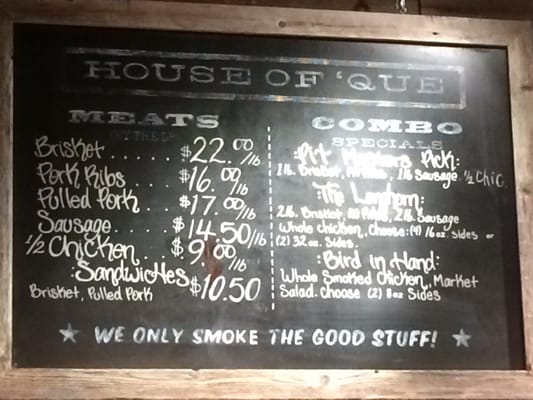 HOUSE OF 'QUE
MEATS
BY THE LB
Brisket . . . . . . $22.00/lb
Pork Ribs . . . . $16.00/lb
Pulled Pork . . $17.00/lb
Sausage . . . . . $14.50/lb
1/2 Chicken . . . $9.00/lb
:Sandwiches
Brisket, Pulled Pork $10.50
COMBO
SPECIALS
:Pit Pick:
1 lb. Brisket, 1 lb Sausage, 1/2 Chic.
:The Longhorn:
2 lb. Brisket, 2 lb. Sausage
Whole chicken, Choose: (4) 16 oz sides or
(2) 32 oz. Sides.
:Bird in Hand:
Whole Smoked Chicken, Market
Salad. Choose (2) 8 oz Sides
★ WE ONLY SMOKE THE GOOD STUFF! ★